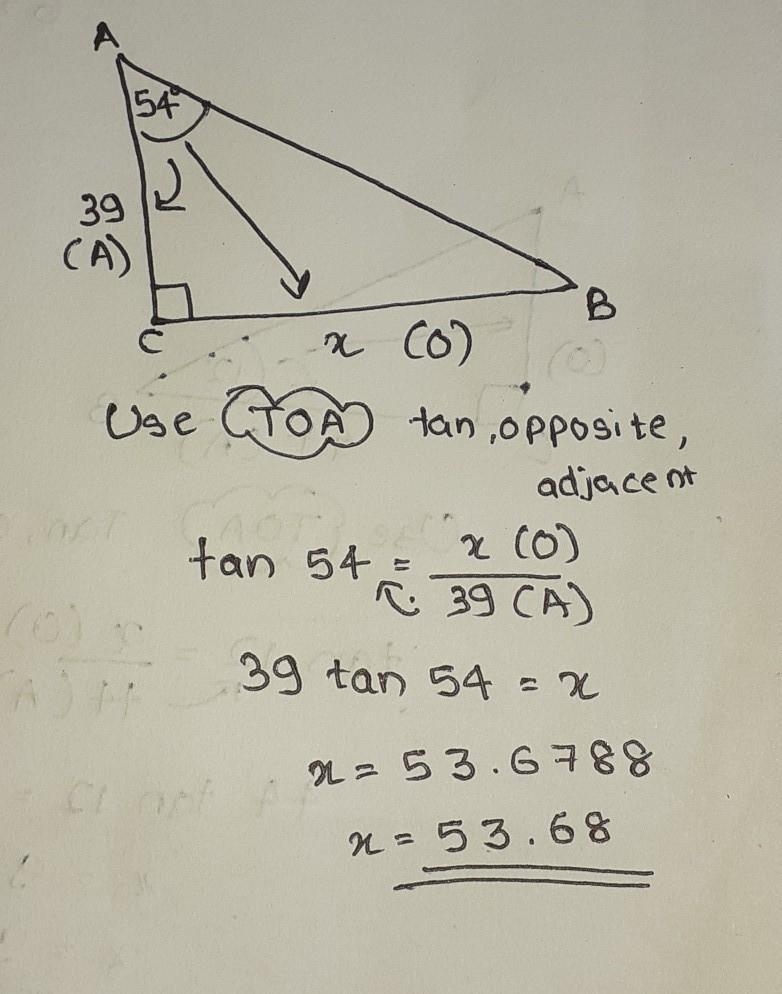 A
54°
39
(A)
C
B
x (O)
Use (TOA) tan, opposite,
adjacent
tan 54 = x (O) / 39 (A)
39 tan 54 = x
x = 53.6788
x = 53.68